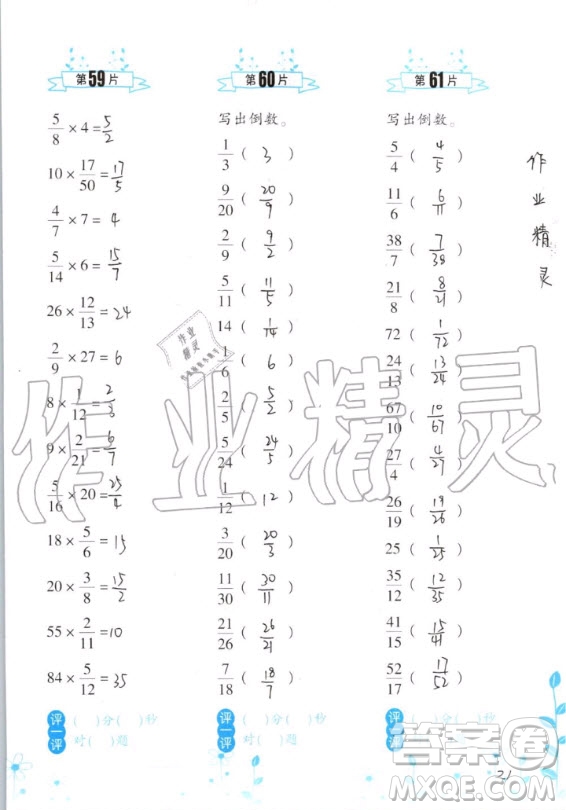 第59片
5/8 × 4 = 5/2
10 × 17/50 = 17/5
4/7 × 7 = 4
5/14 × 6 = 15/7
26 × 12/13 = 24
2/9 × 27 = 6
8 × 1/12 = 2/3
9 × 2/21 = 6/7
5/16 × 20 = 25/4
18 × 5/6 = 15
20 × 3/8 = 15/2
55 × 2/11 = 10
84 × 5/12 = 35
评一评
( )分( )秒
对( )题
第60片
写出倒数。
1/3 ( 3 )
9/20 ( 20/9 )
2/9 ( 9/2 )
5/11 ( 11/5 )
14 ( 1/14 )
1/6 ( 6 )
2/5 ( 5/2 )
5/24 ( 24/5 )
1/12 ( 12 )
3/20 ( 20/3 )
11/30 ( 30/11 )
21/26 ( 26/21 )
7/18 ( 18/7 )
评一评
( )分( )秒
对( )题
第61片
写出倒数。
5/4 ( 4/5 )
11/6 ( 6/11 )
38/7 ( 7/38 )
21/8 ( 8/21 )
72 ( 1/72 )
24/13 ( 13/24 )
67/10 ( 10/67 )
27/4 ( 4/27 )
26/19 ( 19/26 )
25 ( 1/25 )
35/12 ( 12/35 )
41/15 ( 15/41 )
52/17 ( 17/52 )
( )分( )秒
对( )题
作业精灵
作业精灵
作业
精灵
答案圈
MXQE.COM
21